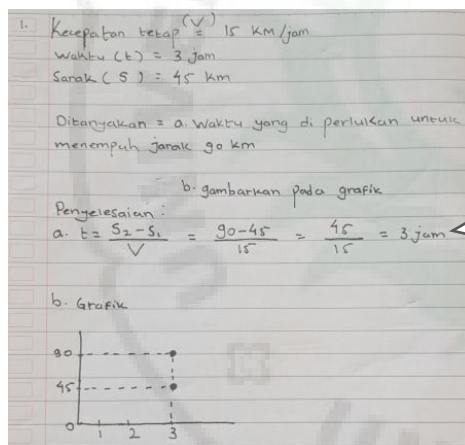 1. Kecepatan tetap (V) = 15 KM/jam
Waktu (t) = 3 jam
Jarak (S) = 45 km
Ditanyakan = a. Waktu yang di perlukan untuk
menempuh jarak 90 km
b. gambarkan pada grafik
Penyelesaian :
a. t = S2 - S1 / V = 90 - 45 / 15 = 45 / 15 = 3 jam
b. Grafik
90
45
0 1 2 3